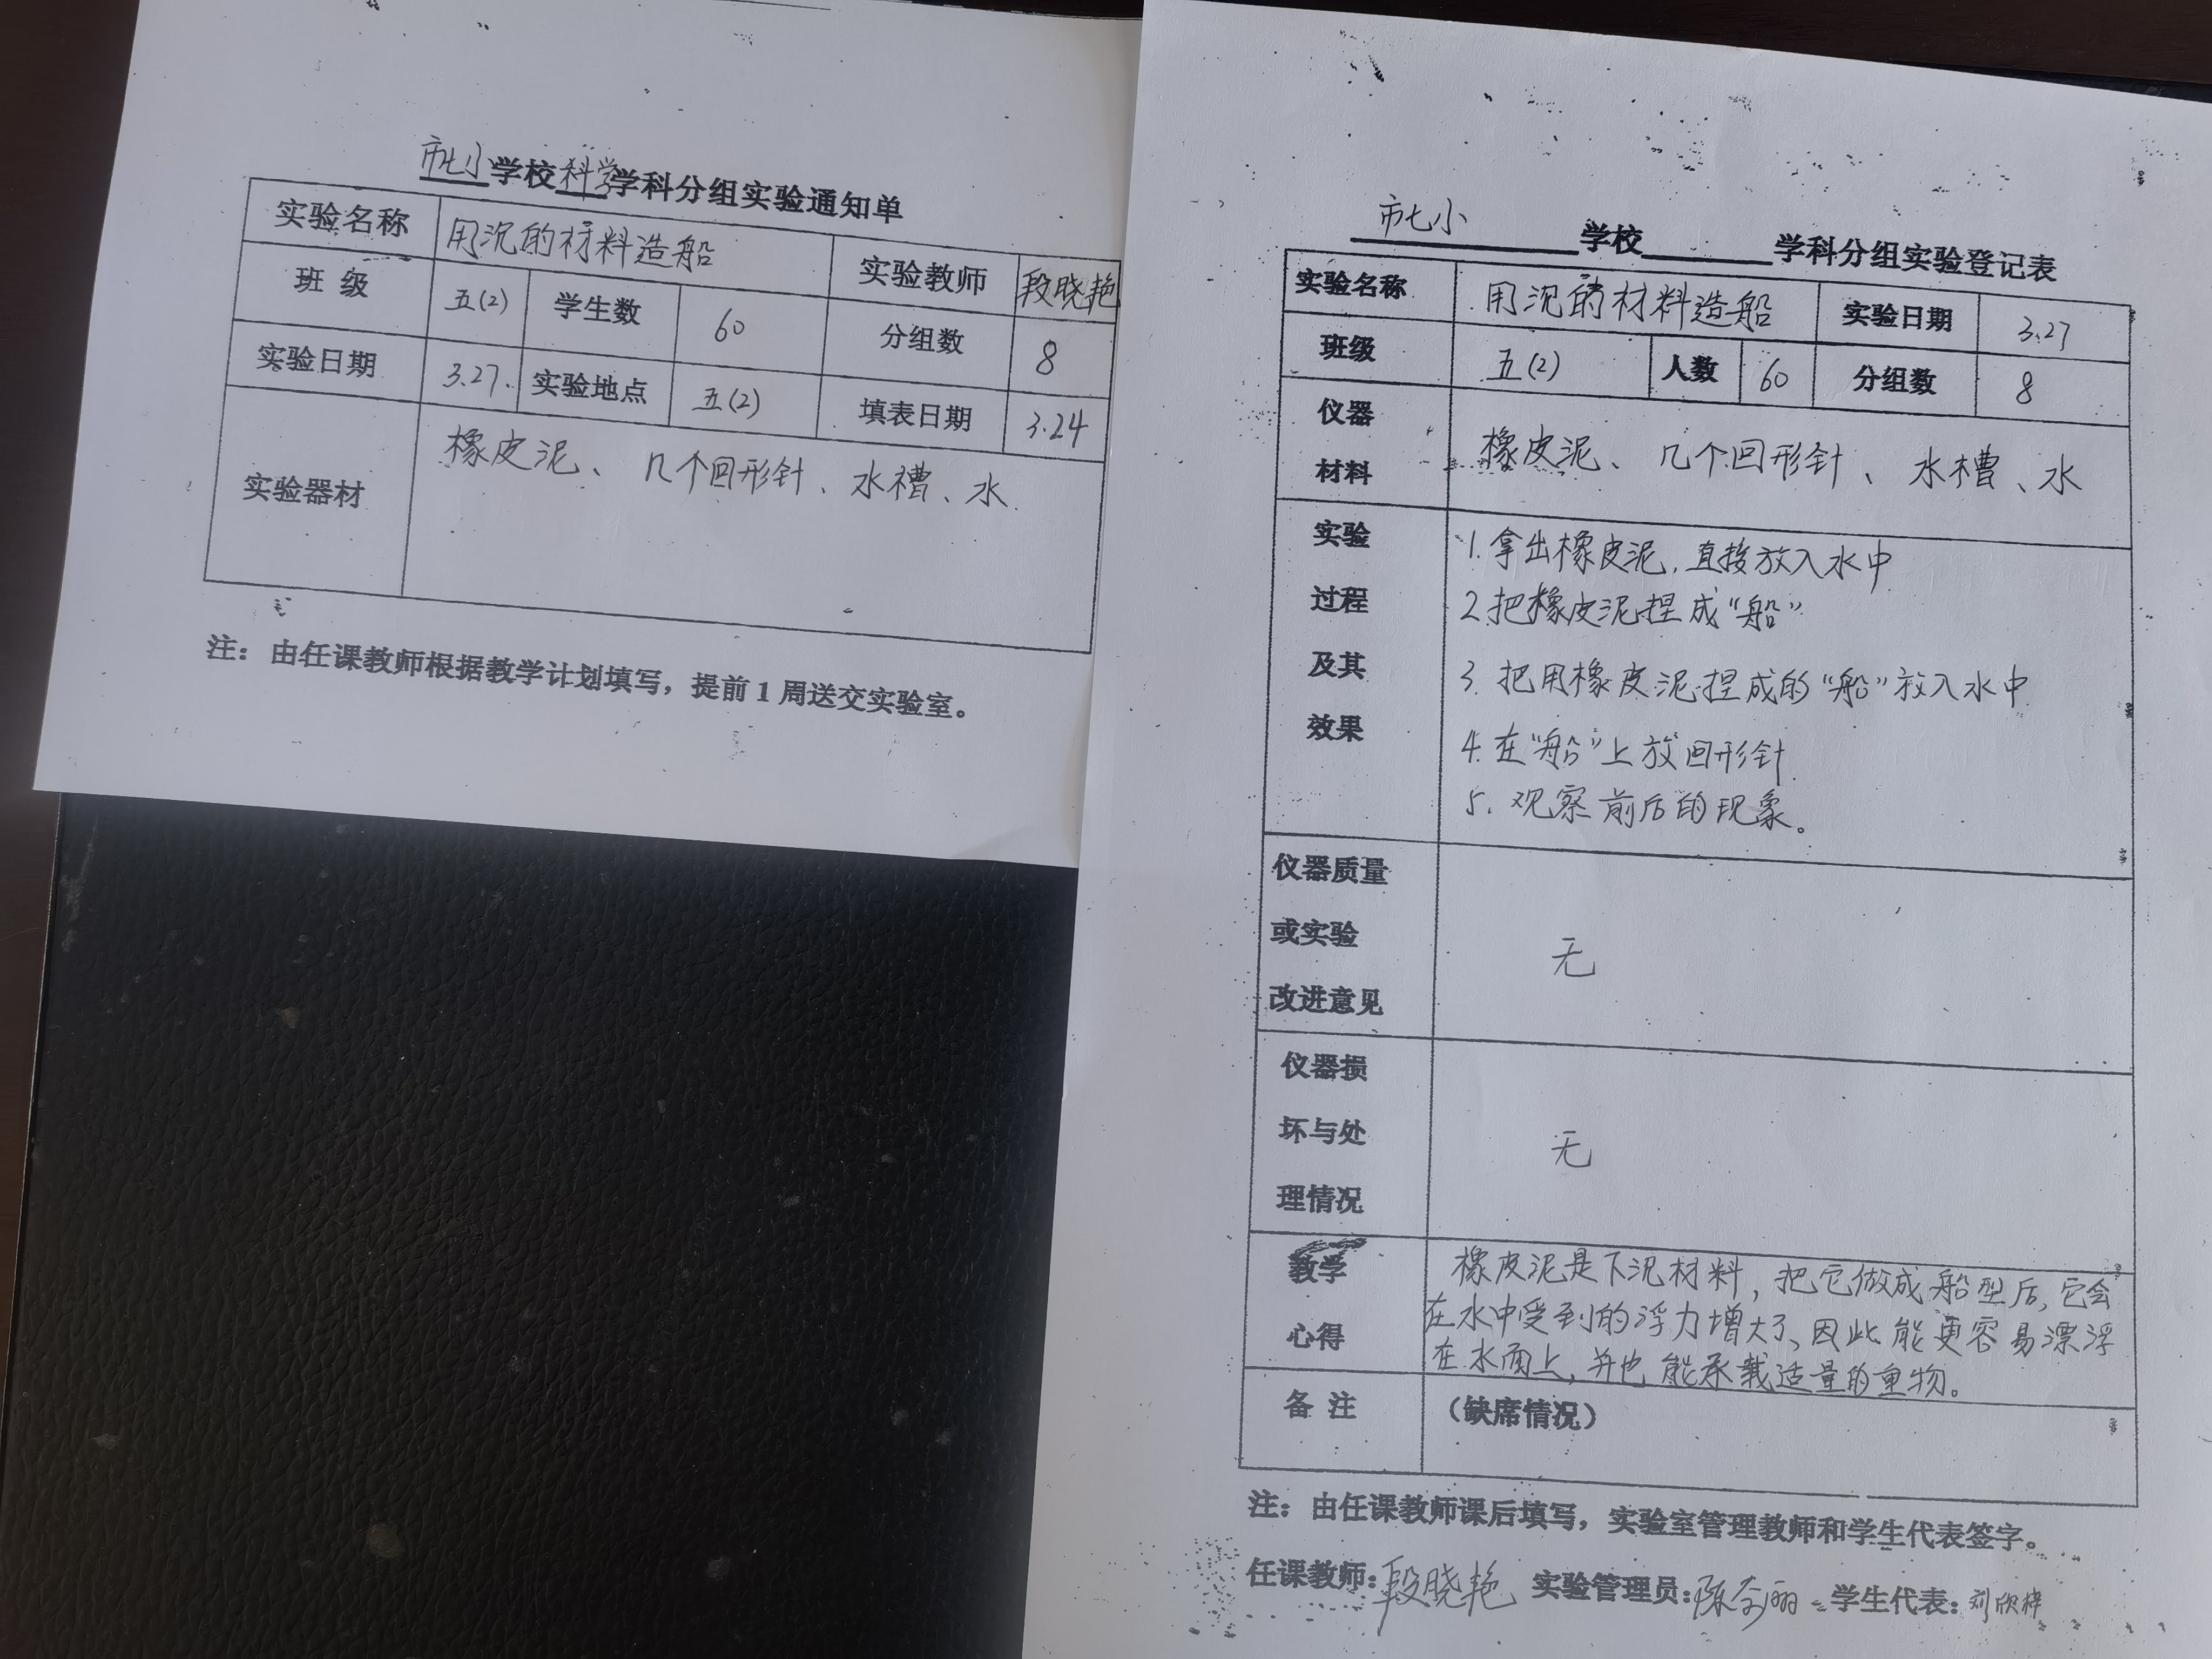 市七小学校科学学科分组实验通知单
实验名称 用沉的材料造船 实验教师 段晓艳
班 级 五(2) 学生数 60 分组数 8
实验日期 3.27. 实验地点 五(2) 填表日期 3.24
实验器材 橡皮泥、几个回形针、水槽、水
注：由任课教师根据教学计划填写，提前1周送交实验室。
市七小 学校 学科分组实验登记表
实验名称 用沉的材料造船 实验日期 3.27
班级 五(2) 人数 60 分组数 8
仪器
材料
橡皮泥、几个回形针、水槽、水
实验
过程
及其
效果
1.拿出橡皮泥,直接放入水中
2.把橡皮泥捏成“船”
3.把用橡皮泥捏成的“船”放入水中
4.在“船”上放回形针
5.观察前后的现象。
仪器质量
或实验
改进意见
无
仪器损
坏与处
理情况
无
教学
心得
橡皮泥是下沉材料,把它做成船型后,它会
在水中受到的浮力增大了、因此能更容易漂浮
在水面上,并也能承载适量的重物。
备 注 （缺席情况）
注：由任课教师课后填写，实验室管理教师和学生代表签字。
任课教师:段晓艳 实验管理员: 学生代表: